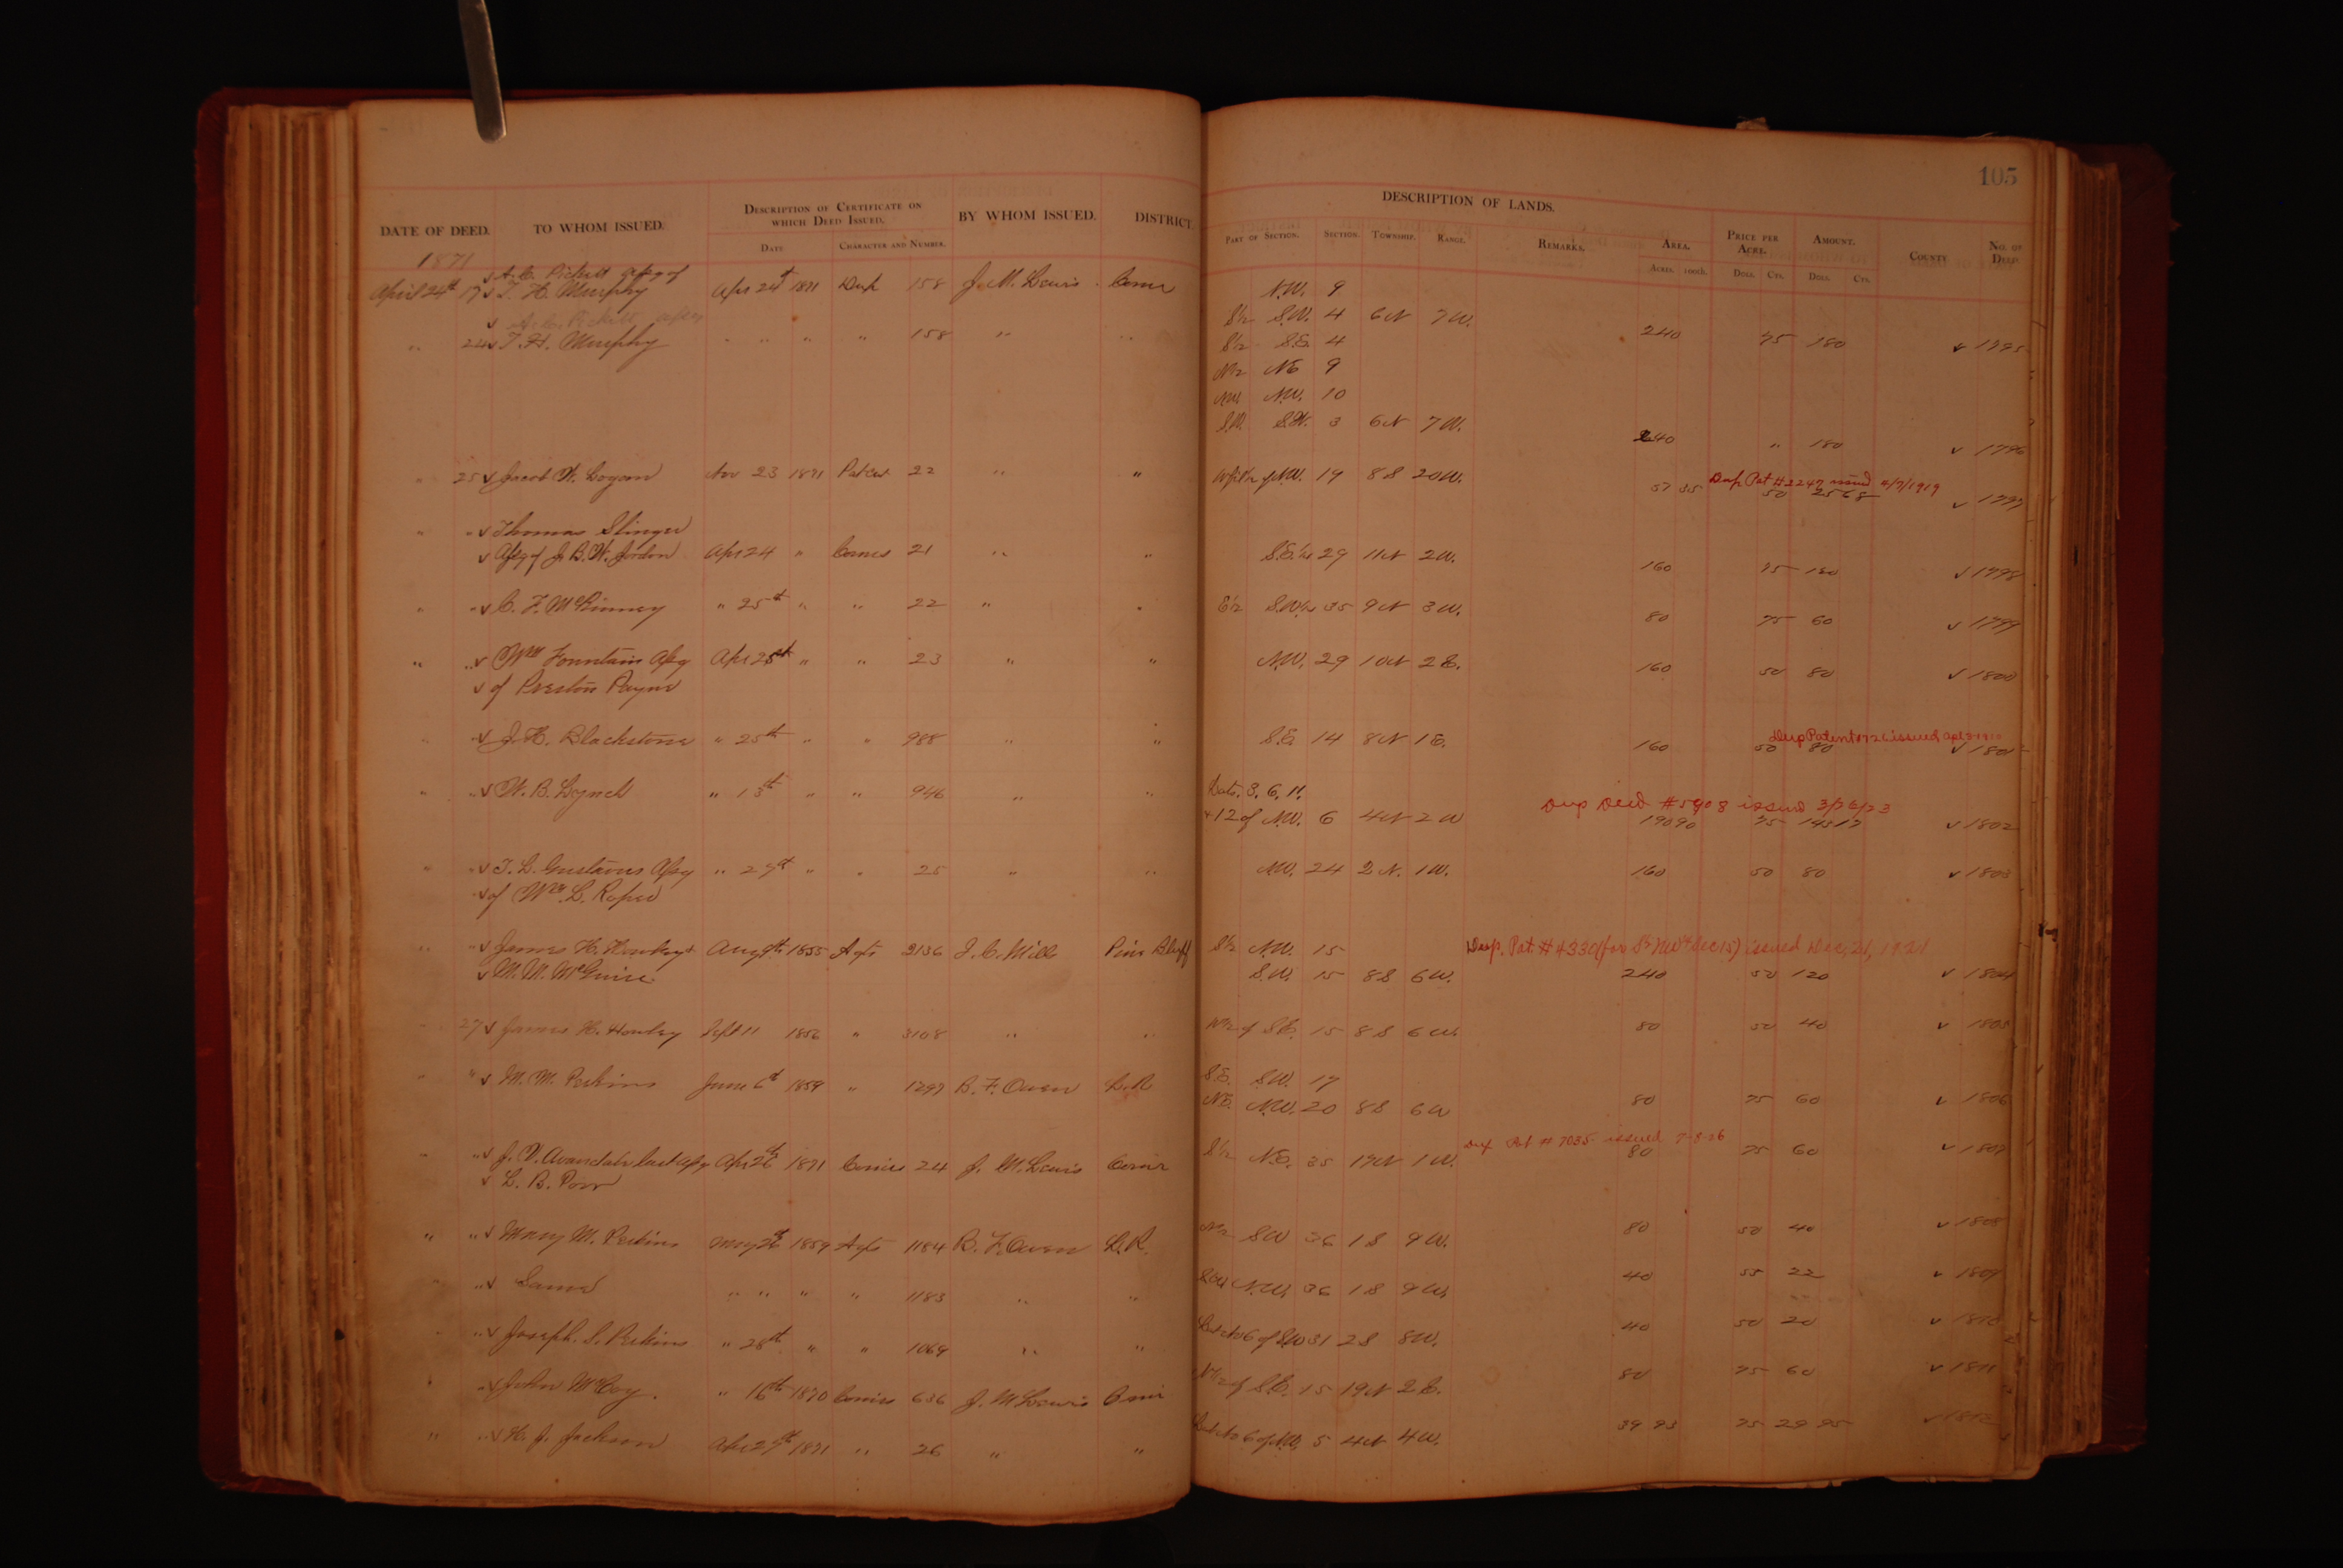 105
DESCRIPTION OF LANDS.
DATE OF DEED. TO WHOM ISSUED. DESCRIPTION OF CERTIFICATE ON WHICH DEED ISSUED. BY WHOM ISSUED. DISTRICT PART OF SECTION. SECTION. TOWNSHIP. RANGE. REMARKS. AREA. PRICE PER ACRE. AMOUNT. COUNTY NO. OF DEED.
DATE CHARACTER AND NUMBER. ACRES. 100th. DOLL. CTS. DOLL. CTS.
1871
A. C. Pickett assg of
April 24th T. H. Murphy Apr 24th 1871 Dup 158 J. M. Lewis N.W. 9
S½ S.W. 4 6N 7W. 240 75 180 ✓ 1795
" 24 ✓ T. H. Murphy " " " " 158 " " S½ S.E. 4
N½ NE 9
NW N.W. 10
S.W. S.W. 3 6N 7W. 240 " 180 ✓ 1796
" 25 ✓ Jacob W. Logan Nov 23 1871 22 " " N.W. 19 8S 20W. 57 35 50 2568 ✓ 1797
Dup Pat # 2247 issued 4/7/1919
" " ✓ Thomas Slinger
✓ Assg of J. B. W. Jordon Apr 24 " 21 " " S.E.¼ 29 11N 2W. 160 75 120 ✓ 1798
" " ✓ C. F. McKinney " 25th " " 22 " " E½ S.W¼ 35 9N 3W. 80 75 60 ✓ 1799
" " ✓ Wm Fountain Assg Apr 25th " " 23 " " N.W. 29 10N 2E. 160 50 80 ✓ 1800
✓ of Preston Payne
" " ✓ J. H. Blackstone " 25th " " 988 " " S.E. 14 8N 1E. 160 50 80 ✓ 1801
" " ✓ W. B. Lynch " 13th " " 946 " " Lots. 3. 6. 11.
+ 12 of N.W. 6 4N 2W 190 90 75 143 17 ✓ 1802
Dup Deed #5908 issued 3/26/23
" " ✓ T. L. Gustavus Assg " 27th " " 25 " " N.W. 24 2N. 1W. 160 50 80 ✓ 1803
✓ of Wm. L. Roper
" " ✓ James H. Aug 9th 1855 2136 J. C. Mills Pine Bluff S½ N.W. 15
Dup. Pat. # 4330 (for S½ NW¼ Sec 15) issued Dec, 21, 1921
✓ M. M. McGuire S.W. 15 8S 6W. 240 50 120 ✓ 1804
" 27 ✓ James H. Hawley Sept 11 1856 " 3108 " " of S.E. 15 8S 6W. 80 50 40 ✓ 1805
" " ✓ M. M. Perkins June 6th 1859 " 1297 B. F. Owen L.R S.E. S.W. 17
N.E. N.W. 20 8S 6W 80 75 60 ✓ 1806
Dup Pat # 7035 issued 7-8-26
" " ✓ J. V. last assg Apr 26th 1871 24 J. M. Lewis S½ N.E. 35 19N 1W. 80 75 60 ✓ 1807
✓ L. B. Poss
" " ✓ Mary M. Perkins May 26th 1859 1184 B. F. Owen L.R. N½ SW 36 1S 9W. 80 50 40 ✓ 1808
" " ✓ Same " " " " 1183 " " N.W. 36 1S 9W. 40 55 22 ✓ 1809
" " ✓ Joseph. S. Perkins " 28th " " 1069 " " Lot No 6 of S.W 31 2S 8W. 40 50 20 ✓ 1810
" ✓ John McCoy. " 16th 1870 636 J. M Lewis of S.E. 15 19N 2E. 80 75 60 ✓ 1811
" " ✓ H. J. Jackson Apr 27th 1871 " 26 " " Lot No 6 of N.W. 5 4N 4W. 39 93 75 29 95 ✓ 1812